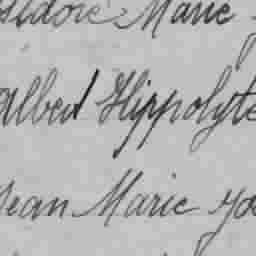 Isidore Marie
Albert Hippolyte
Jean Marie